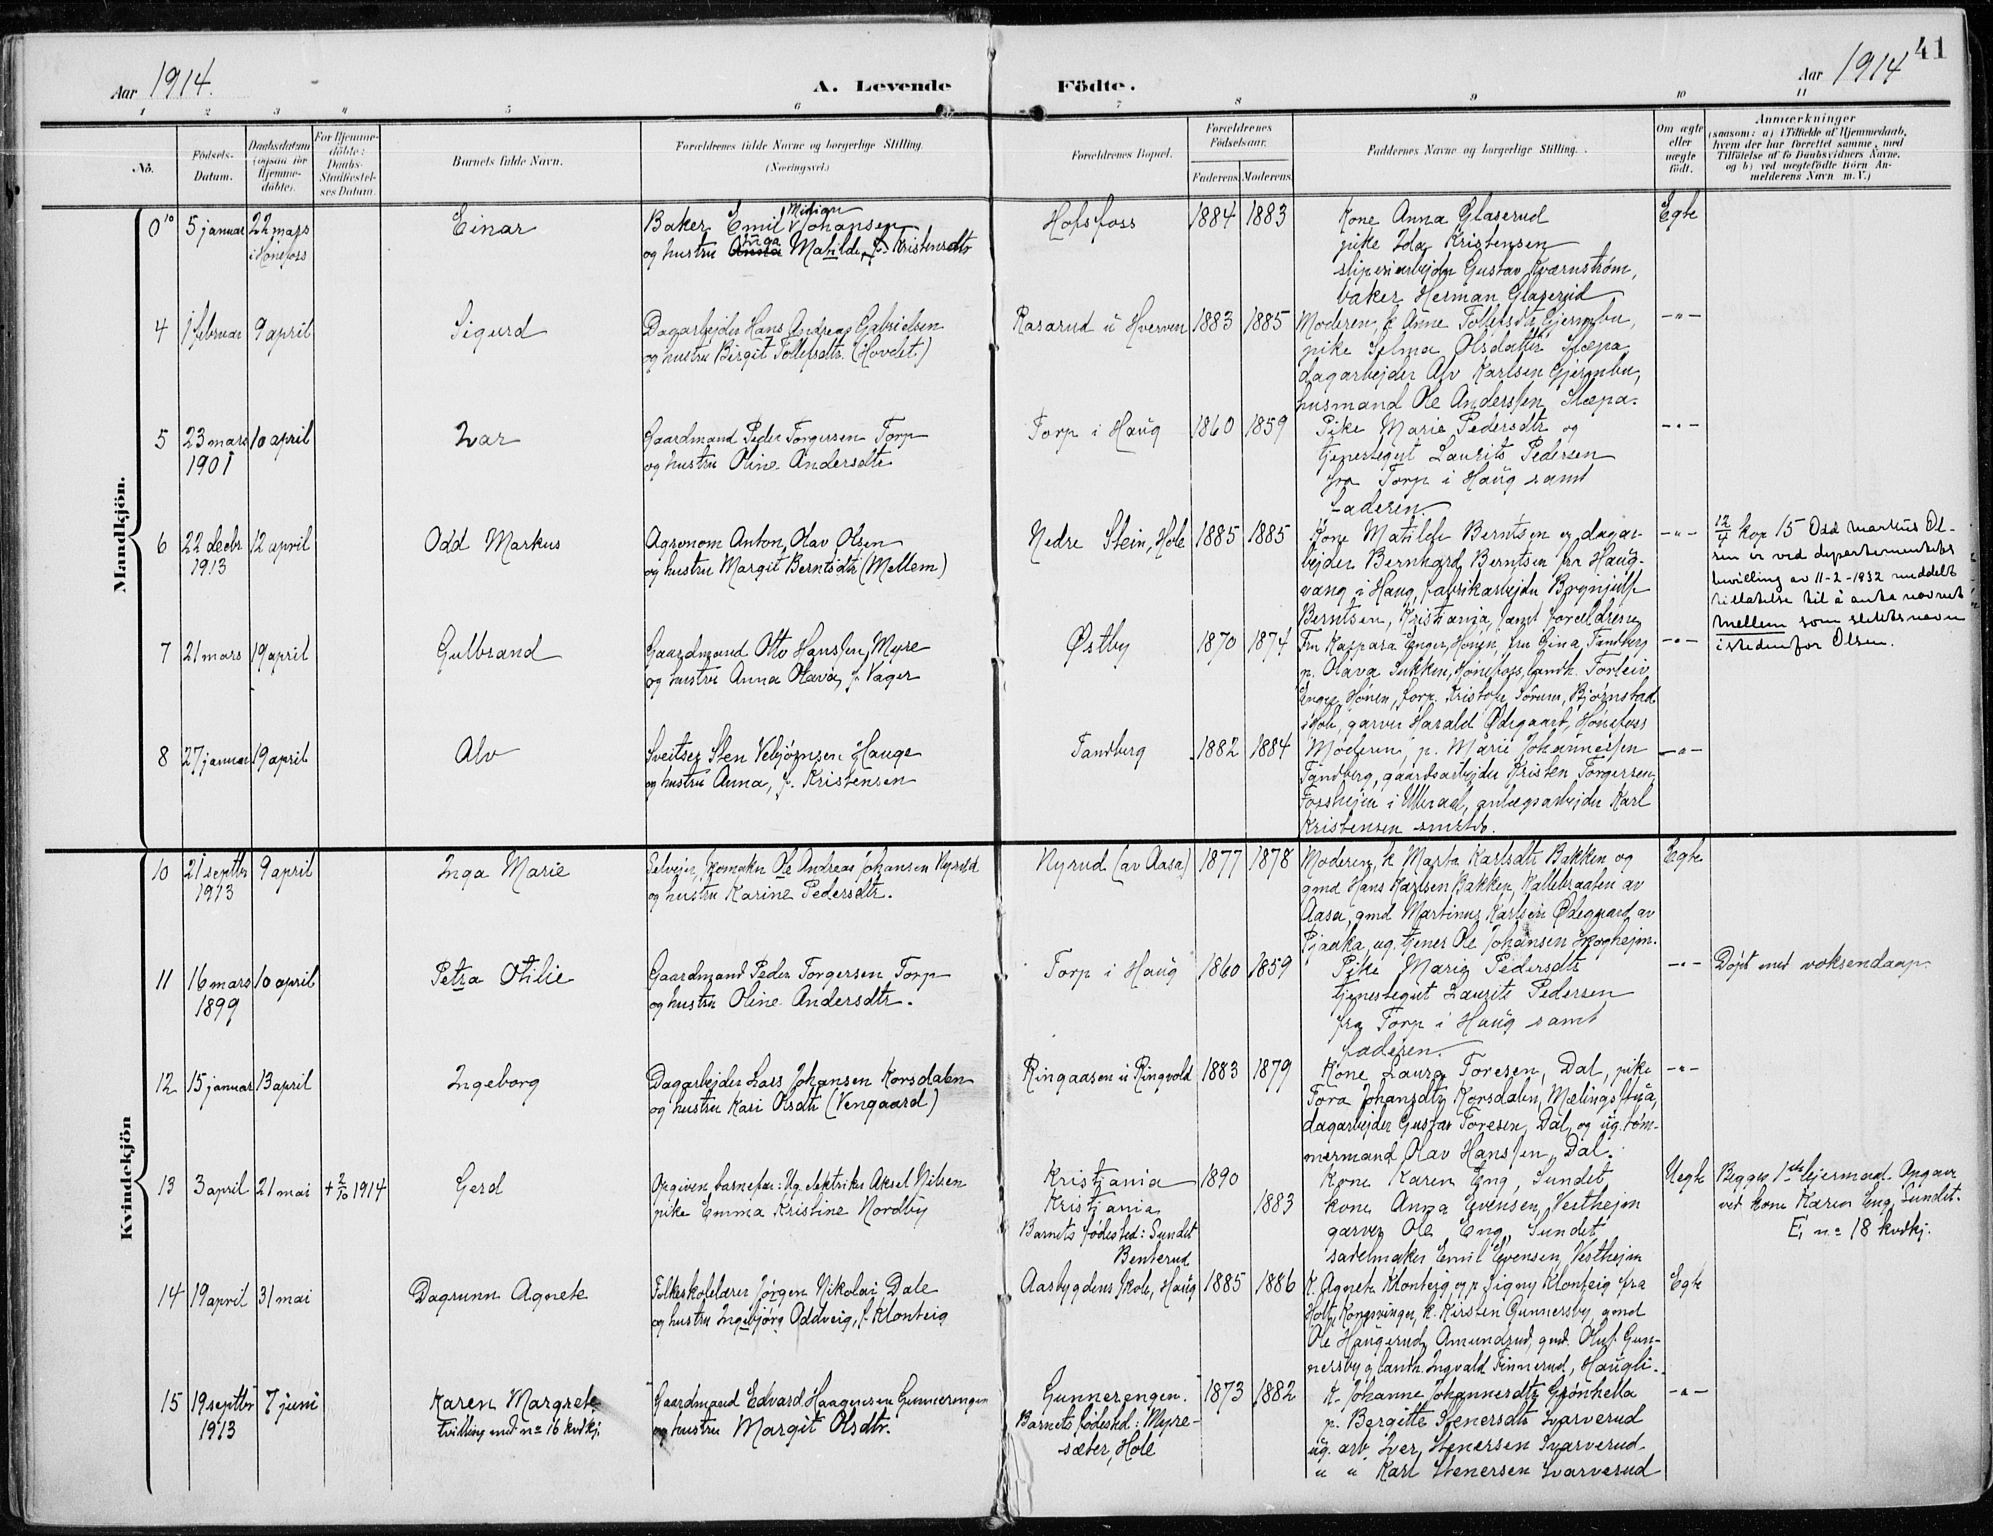 41
Aar 1914. A. Levende Födte. Aar 1914
1 2 3 4 5 6 7 8 9 10 11
No. Födsels-Datum. Daabsdatum (ogsaa for Hjemme-döbte). For Hjemme-döbte: Daabs-Stadfæstel-ses Datum. Barnets fulde Navn. Forældrenes fulde Navne og borgerlige Stilling. (Næringsvei.) Forældrenes Bopæl. Forældrenes Födselsaar. Faderens. Moderens. Faddernes Navne og borgerlige Stilling. Om ægte eller uægte födt. Anmærkninger
(saasom: a) i Tilfælde af Hjemmedaab,
hvem der har forrettet samme, med
Tilföielse af to Daabsvidners Navne,
og b) ved uægtefödte Börn An-
melderens Navn m. V.)
Mandkjön.
5 januar 22 mars i Hönefoss Einar
Baker Emil Johansen
og hustru Inga Matilde, f. Kristensdtr
Hofsfoss 1884 1883
Kone Anna Glaserud
pike Ida Kristensen
sliperiarbejder Gustav Kværnstrøm,
baker Herman Glaserud
Egte
4 1 februar 9 april Sigurd
Dagarbejder Hans Andreas Gabrielsen
og hustru Birgit Tollefsdtr. (Hovdet)
Rasarud u Hverven 1883 1885
Moderen, k Anne Tollefsdtr Gjermbu,
pike Selma Olsdatter Slæpa
dagarbejder Alv Karlsen Gjermbu,
husmand Ole Anderssen Slæpa.
-"-
5 23 mars 1901 10 april Ivar
Gaardmand Peder Torgersen Torp
og hustru Oline Andersdtr
Torp i Haug 1860 1859
Pike Marie Pedersdtr og
tjenestegut Laurits Pedersen
fra Torp i Haug samt
faderen.
-"-
6 22 decbr 1913 12 april Odd Markus
Agronom Anton Olav Olsen
og hustru Margit Berntsdtr (Mellem)
Nedre Stein, Hole 1885 1885
Kone Matilde Berntsen og dagar-
bejder Bernhard Berntsen fra Haug-
vang i Haug, fabrikarbejder Brynjulf
Berntsen, Kristiania, samt forældrene
-"-
12/4 kop 15 Odd Markus Ol-
sen er ved departementets
bevilling av 11-2-1932 meddelt
tillatelse til å anta navnet
Mellem som slektsnavn
istedenfor Olsen.
7 21 mars 19 april Gulbrand
Gaardmand Otto Hanssen Myre
og hustru Anna Olava, f. Vager
Østby 1870 1874
Fru Kaspara Enger, Hönen, fru Gina Tandberg
p. Olava Sukken, Hönefoss, landh. Torleiv
Enger, Hönen, forp. Kristofer Sörum, Bjørnstad
i Hole, garver Harald Ødegaard, Hönefoss
-"-
8 27 januar 19 april Alv
Sveitser Sten Vebjørnsen Hauge
og hustru Anna, f. Kristensen
Tandberg 1882 1884
Moderen, p. Marie Johannessen
Tandberg, gaardsarbejder Kristen Torgersen
Fossheim i Ullnral, anlægsarbejder Karl
Kristensen smstds.
-"-
Kvindekjön
10 21 septbr 1913 9 april Inga Marie
Selvejer, skomaker Ole Andreas Johansen Nyrud
og hustru Karine Pedersdtr.
Nyrud (av Aasa) 1877 1878
Moderen, k Marta Karlsdtr Bakken og
gmd Hans Karlsen Bakken, Kallebraaten av
Aasa, gmd Martinus Karlsen Ødegaard av
Pjaaka, ug. tjener Ole Johansen Skoghejm.
Egte
11 16 mars 1899 10 april Petra Otilie
Gaardmand Peder Torgersen Torp
og hustru Oline Andersdtr.
Torp i Haug 1860 1859
Pike Marie Pedersdtr
tjenestegut Laurits Pedersen
fra Torp i Haug samt
faderen.
-"-
Døpt med voksendaap.
12 15 januar 13 april Ingeborg
Dagarbejder Lars Johansen Korsdalen
og hustru Kari Olsdtr (Vengaard)
Ringaasen u Ringvold 1883 1879
Kone Laura Toresen, Dal, pike
Tora Johansdtr Korsdalen, Mælingstua,
dagarbejder Gustav Toresen, Dal, og ug. töm-
mermand Olav Hanssen, Dal.
-"-
13 3 april 21 mai + 2/10 1914 Gerd
Opgiven barnefar: Ug. elektriker Aksel Nilsen
pike Emma Kristine Nordby
Kristiania 1890
Kristiania 1883
Barnets fødested: Sundet
Benterud
Kone Karen Eng, Sundet
kone Anna Evensen, Vesthejm
garver Ole Eng, Sundet
sadelmaker Emil Evensen, Vesthejm
Uegte
Begges 1ste lejermaal. Angaar
ved kone Karen Eng, Sundet.
E, n= 18 kvdkj.
14 19 april 31 mai Dagrunn Agnete
Folkeskolelærer Jørgen Nikolai Dale
og hustru Ingebjørg Oddveig, f. Klonteig
Aasbygdens skole, Haug 1885 1886
K. Agnete Klonteig og p Signy Klonteig fra
Holt, Kongsvinger, k. Kirsten Gunnersby, gmd
Ole Haugerud, Amundrud, gmd. Oluf Gun-
nersby og landh. Ingvald Finnerud, Haugli.
Egte
15 19 septbr 1913 7 juni Karen Margrete
Tvilling med n= 16 kvdkj.
Gaardmand Edvard Haagensen Gunnerengen
og hustru Margit Olsdtr.
Gunnerengen. 1873 1882
Barnets fødested: Myre-
sæter, Hole
K. Johanne Johannesdtr Grønhella
p. Bergitte Stenersdtr Svarverud
ug. arb. Iver Stenersen Svarverud
" " Karl Stenersen Svarverud
-"-